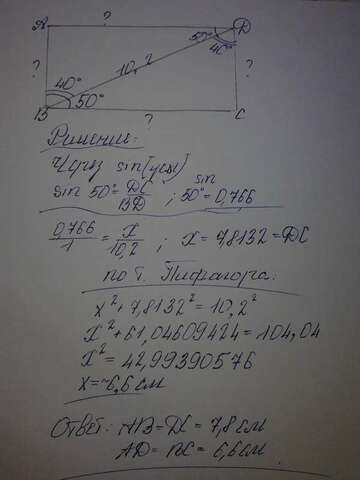 A ? D
50°
40°
? 10,2 ?
40°
50°
B ? C
Решение:
Через sin(усы)
sin 50° = DC/BD ; sin 50° = 0,766
0,766/1 = x/10,2 ; x = 7,8132 = DC
по т. Пифагора:
x² + 7,8132² = 10,2²
x² + 61,04609424 = 104,04
x² = 42,99390576
x = ~6,6 см
Ответ: AB = DC = 7,8 см
AD = BC = 6,6 см